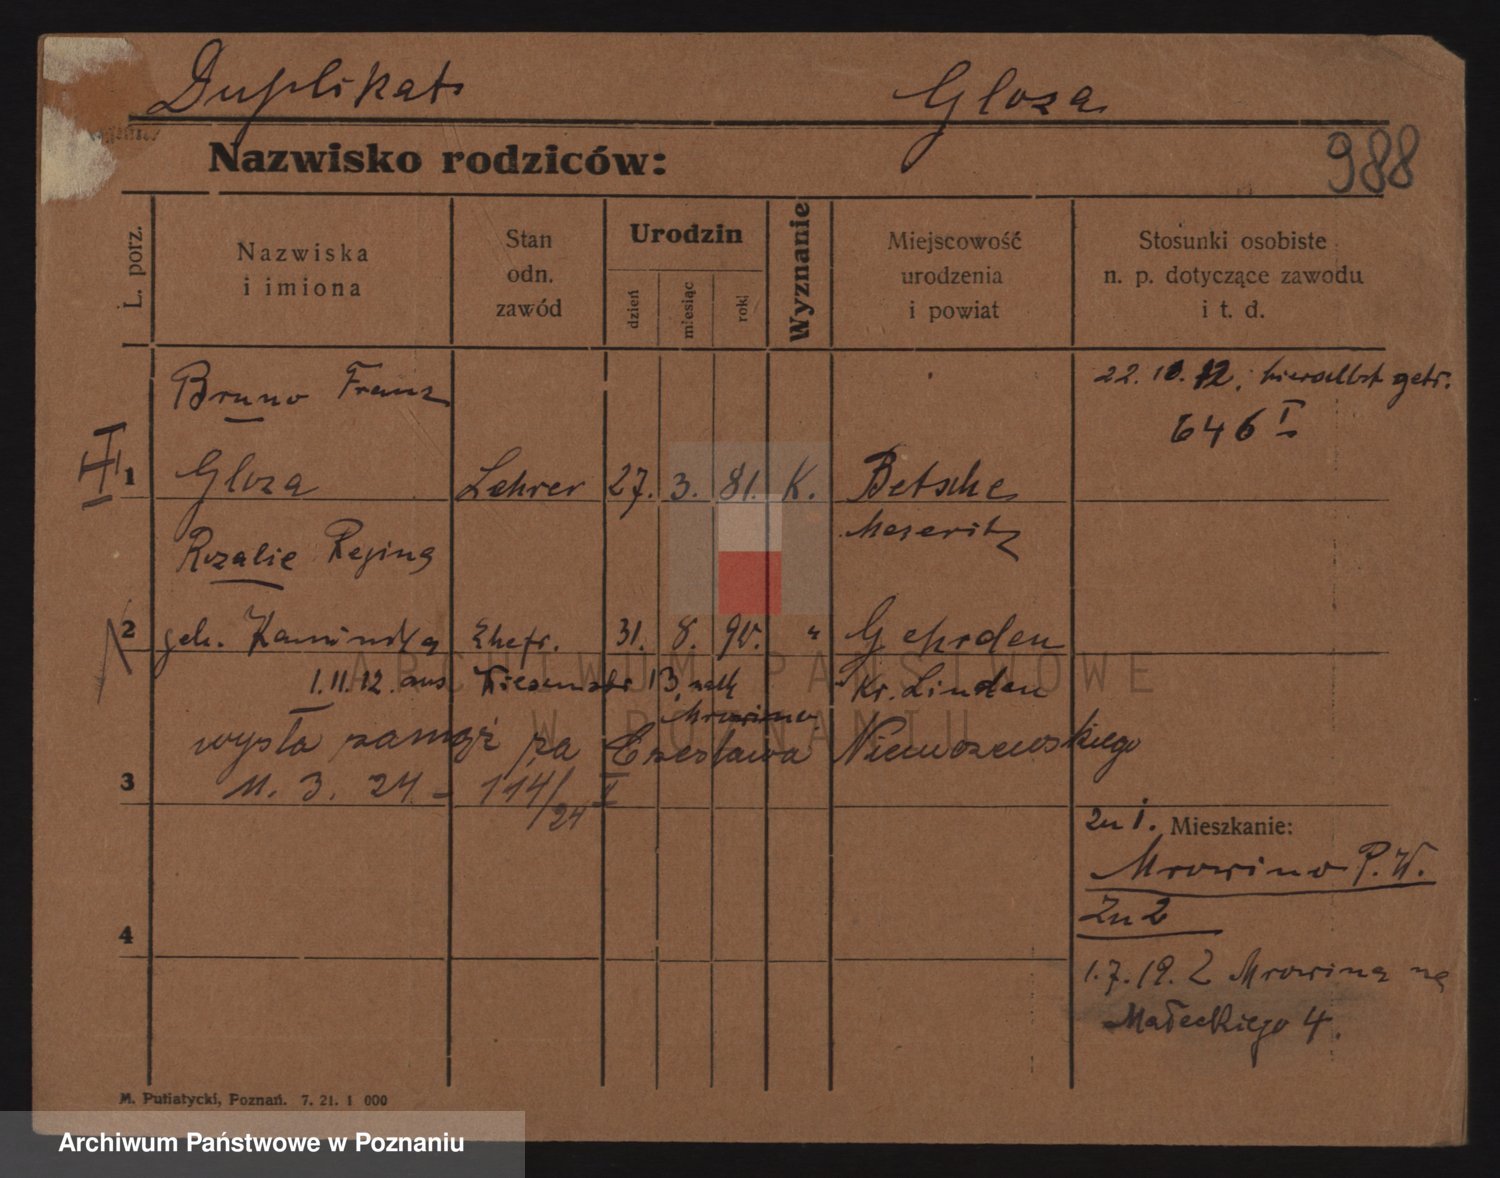 Duplikat Gloza
988
Nazwisko rodziców:
L. porz.
Nazwiska i imiona
Stan odn. zawód
Urodzin
dzień miesiąc rok
Wyznanie
Miejscowość urodzenia i powiat
Stosunki osobiste n. p. dotyczące zawodu i t. d.
Bruno Franz 22.10.12. hierselbst getr.
646 I
II 1 Gloza Lehrer 27. 3. 81. K. Betsche
Meseritz
Rozalie Regina
2 geb. Ehefr. 31. 8. 90. " Gehrden
1.11.12. aus 13 nach Kr. Linden
Mrowino
wyszła zamąż za Czesława
3 11. 3. 24 - 114/24 II
zu 1. Mieszkanie:
Mrowino P.W.
Zu 2
4
1.7.19. Z Mrowina na
Małeckiego 4.
M. Putiatycki, Poznań. 7. 21. 1 000
ARCHIWUM PAŃSTWOWE
W POZNANIU
Archiwum Państwowe w Poznaniu